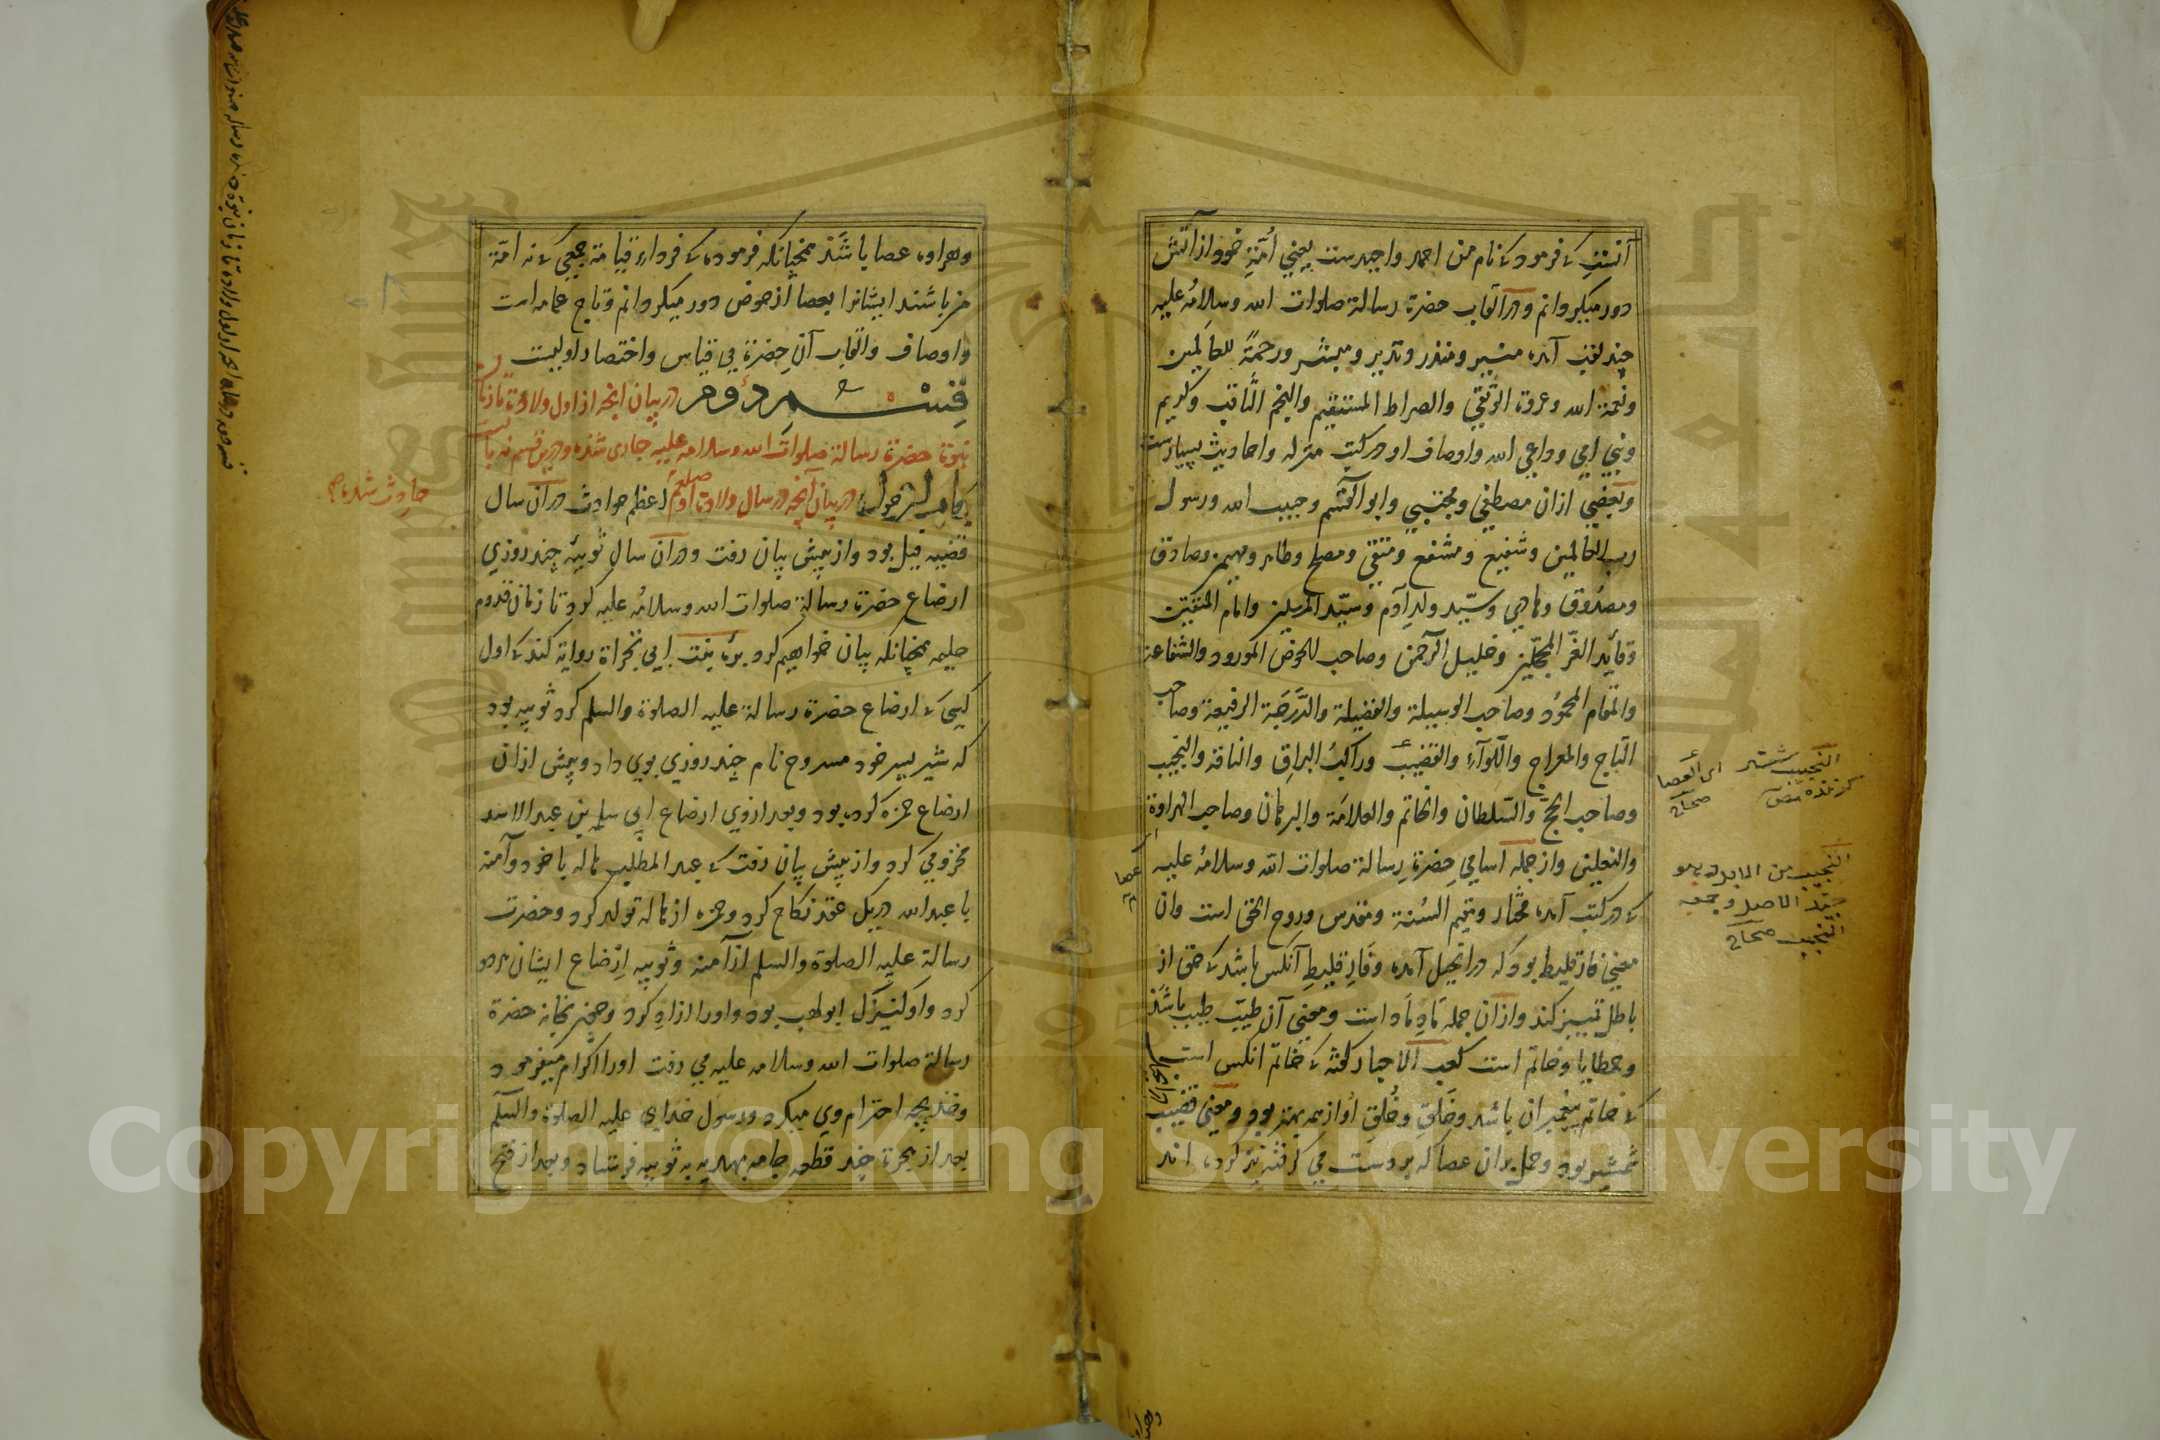 آنست که فرمود که نام من احمد واحیدست یعنی امّتِ خود از آتش
دور میکردانم ودر القاب حضرة رسالة صلوات الله وسلامُه علیه
چند لقب آمده منیر ومنذر ونذیر ومبشر ورحمةً للعالَمین
ونعمة الله وعروة الوثقی والصراط المستقیم والنجم الثّاقب وکریم
ونبی امی وداعی الله واوصاف او در کتب منزله واحادیث بسیارست
وبعضی ازان مصطفی ومجتبی وابو القسم وحبیب الله ورسول
رب العالمین وشفیع ومشفع ومتقی ومصلح وطاهر ومهیمن وصادق
ومصدوق وهادی وسیّد ولدِ آدم وسیّد المرسلین وامام المتقین
وقائد الغرّ المحجّلین وخلیل الرّحمن وصاحب الحوض المورود والشفاعة
والمقام المحمُود وصاحب الوسیلة والفضیلة والدَّرَجَة الرفیعة وصاحب
التّاج والمعراج واللّوآءِ والقضیب وراکبُ البراقِ والناقة والنجیب
وصاحب الحجّة والسّلطان والخاتم والعلامَة والبرهان وصاحب الهراوة
والنعلین واز جمله اسامی حضرةِ رسالة صلوات الله وسلامُه علیه
که در کتب آمده مختار ومقیم السُنة ومقدس وروح الحق است وان
معنی فارقلیط بود که در انجیل آمده وفَارِ قلیطِ آنکس باشد که حق از
باطل تمییز کند وازان جمله مَاد مَاد است ومعنی آن طیّب طیب باشَد
وحطایا وخاتم است کعب الاحبار کفته که خاتم انکس است
که خاتم پیغمبران باشد وخَلقِ وخُلقِ او از همه بهتر بود ومعنی قضیب
شمشیر بود وحمل بران عصا که بر دست می کرفتی نیز کرده اند
النجیب شتر
کزنده
ای العصا
صحاح
النجیب من الابل
صحاح
عصا
وهراوه عصا باشَد همچنانکه فرموده که فرداءِ قیامة جمعی که نه امّة
من باشند ایشانرا بعصا از حوض دور میکردانم وتاج عمامه است
واوصاف والقاب آن حضرة بی قیاس واختصار اولیست
قسم دوم در بیان انچه از اول ولادة تا زمان
نبوة حضرة رسالة صلوات الله وسلامه علیه حادث شده ودرین قسم نه بابست
باب اول در بیان آنچه در سال ولادة او صلعم اعظم حوادث در آن سال
قضیه فیل بود واز پیش بیان رفت ودر آن سال ثویبه چند روزی
ارضاع حضرة رسالة صلوات الله وسلامُه علیه کرد تا زمان قدوم
حلیمه همچنانکه بیان خواهیم کرد برة بنت ابی تجراة روایة کند که اول
کسی که ارضاع حضرة رسالة علیه الصلوة والسلم کرد ثویبه بود
که شیر پسر خود مسروح نام چند روزی بوی داد وپیش ازان
ارضاع حمزه کرده بود وبعد ازوی ارضاع ابی سلمة بن عبد الاسد
مخزومی کرد واز پیش بیان رفت که عبد المطلب هاله با خود وآمنه
با عبد الله در یک عقد نکاح کرد وحمزه از هاله تولد کرد وحضرت
رسالة علیه الصلوة والسلم از آمنه وثویبه اِرْضاع ایشان هردو
کرد واو کنیزک ابو لهب بود واورا آزاد کرد وچون بخانه حضرة
رسالة صلوات الله وسلامه علیه می رفت اورا اکرام میفرمود
وخدیجه احترام وی میکرد ورسول خدای علیه الصلوة والسلم
بعد از هجرة چند قطعه جامه بهدیه به ثویبه فرستاد وبعد از فتح
حادث شده
Copyright © King Saud University